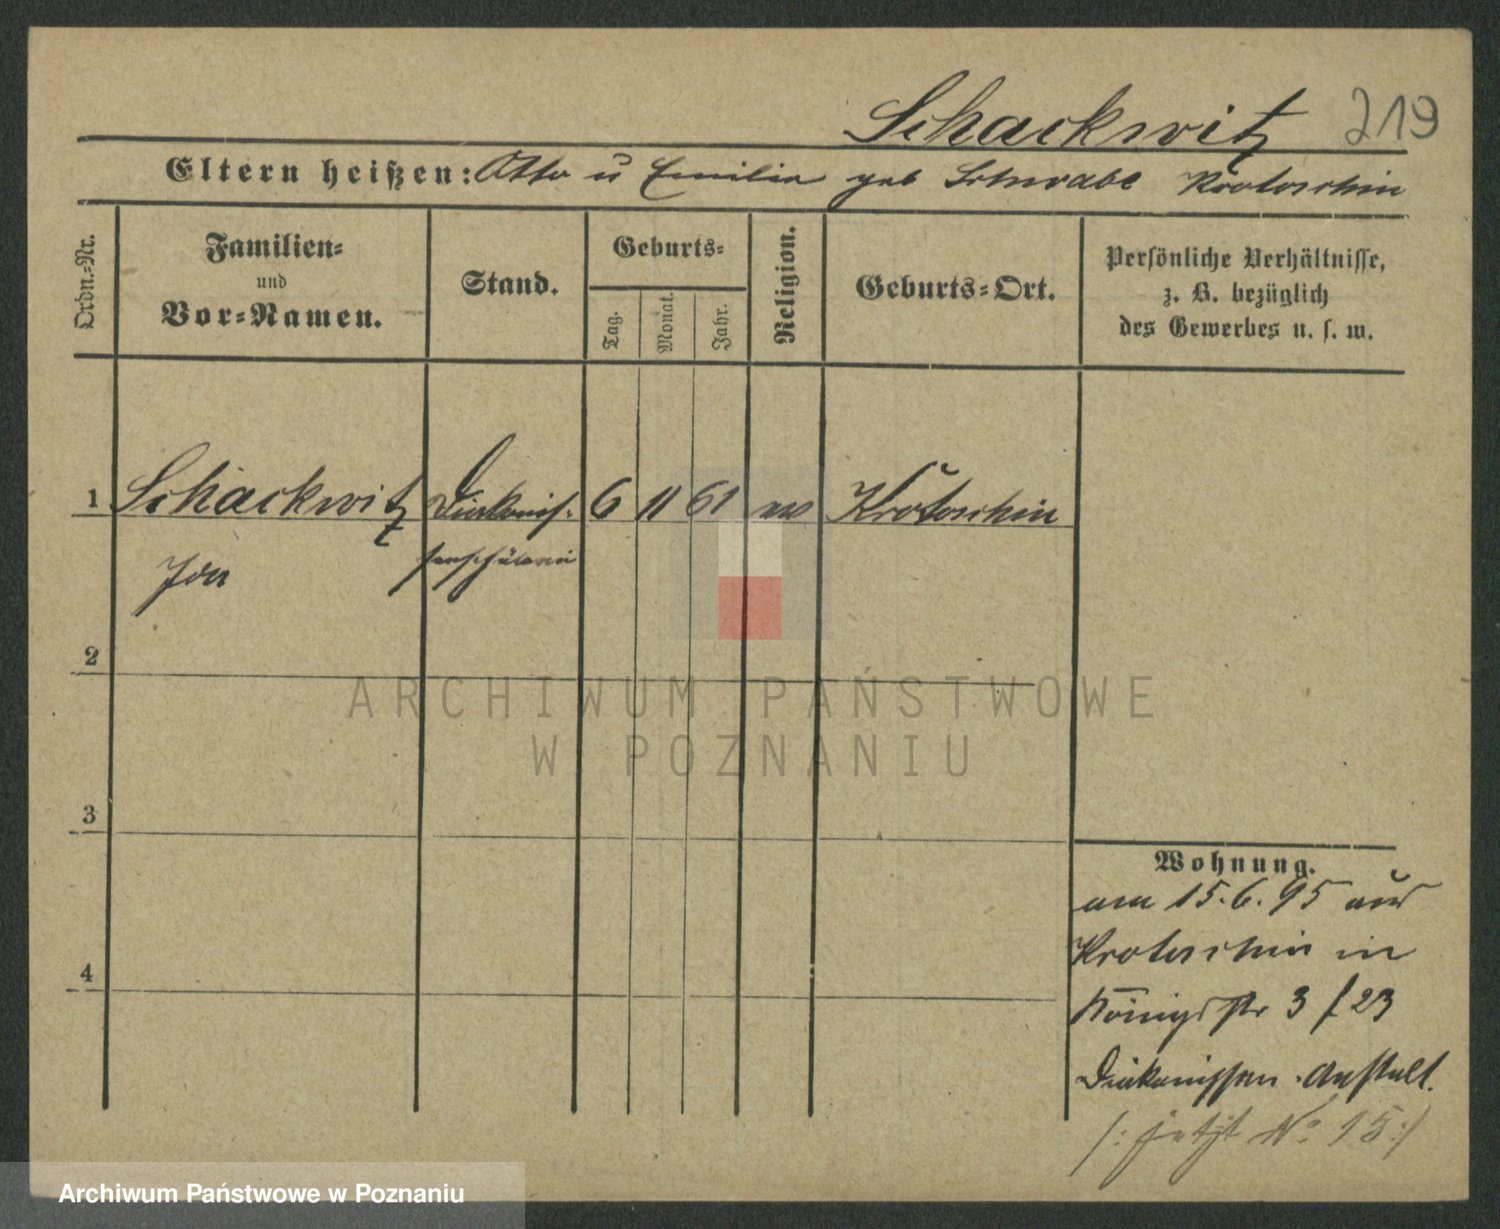 Schackwitz 219
Eltern heißen: Otto u Emilie geb Schwabe Krotoschin
Ordn.=Nr.
Familien=
und
Vor=Namen.
Stand.
Geburts=
Tag.
Monat.
Jahr.
Religion.
Geburts=Ort.
Persönliche Verhältnisse,
z. B. bezüglich
des Gewerbes u. s. w.
1 Schackwitz Diakonis- 6 11 61 ev Krotoschin
Ida senschülerin
2
3
4
Wohnung.
am 15.6.95 aus
Krotoschin in
Königsstr 3 f 23
Diakonissen-Anstalt.
/: jetzt No 15 :/
ARCHIWUM PAŃSTWOWE
W POZNANIU
Archiwum Państwowe w Poznaniu